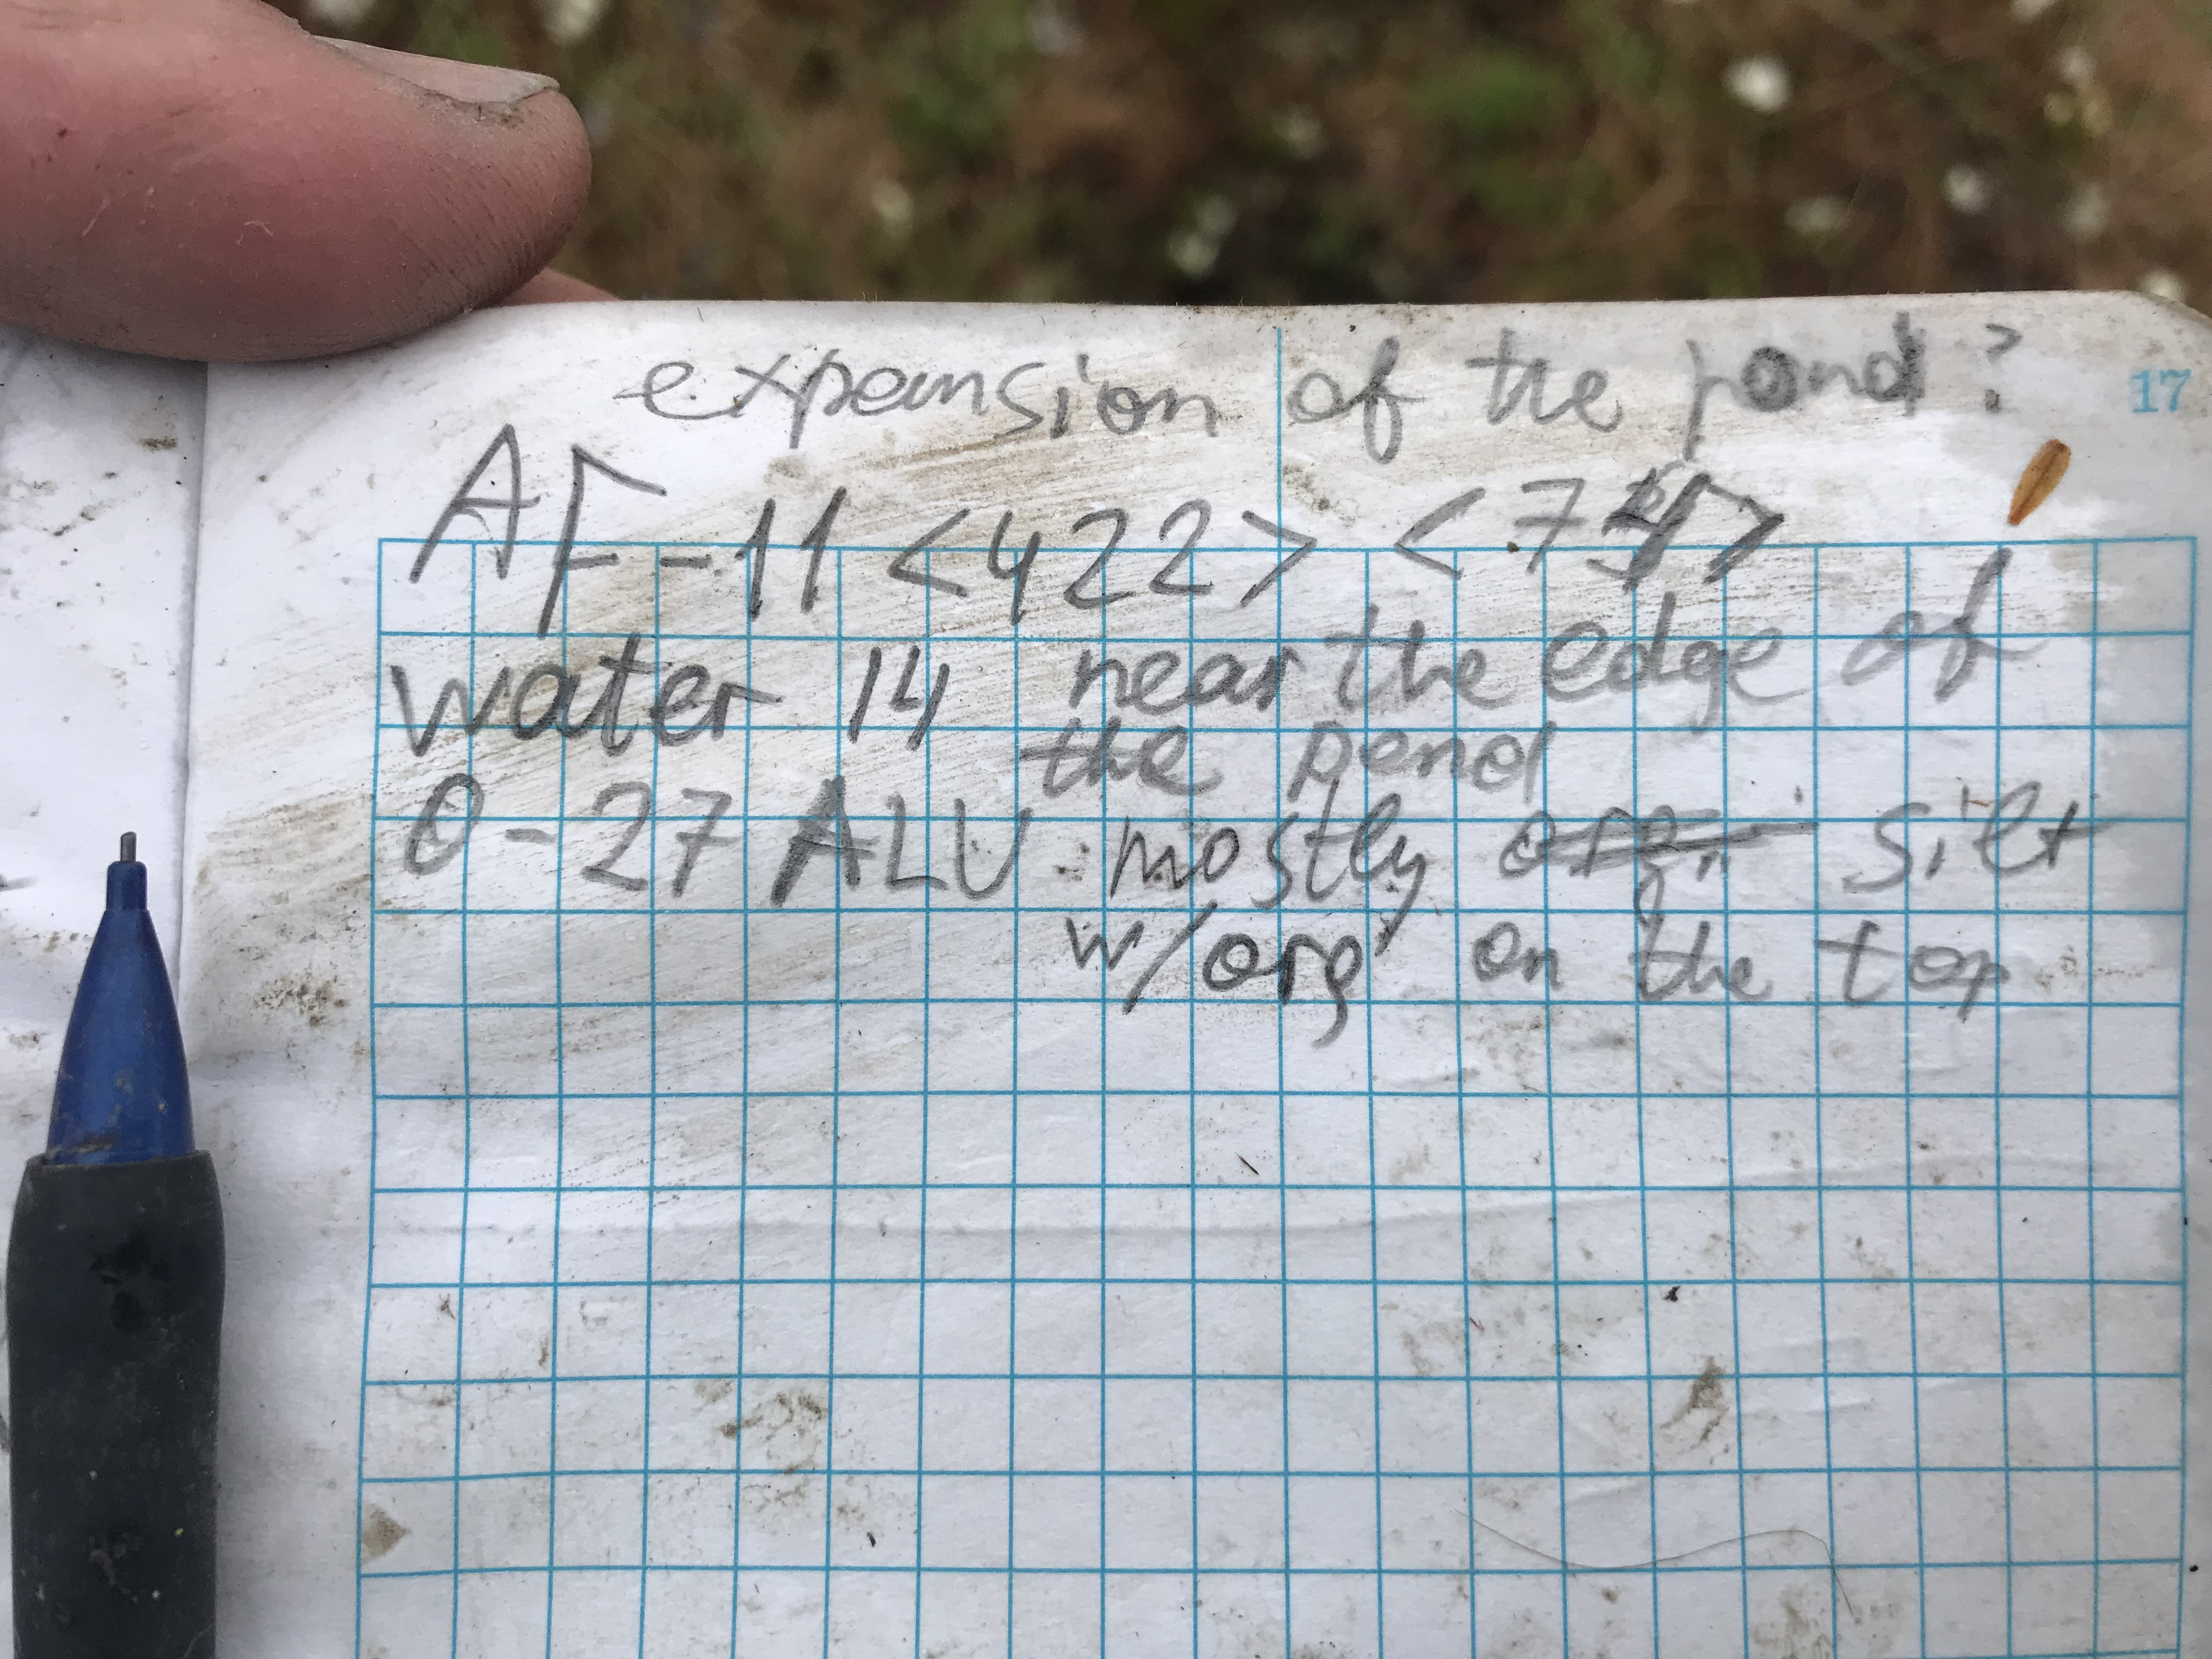 expansion of the pond?
17
AF-11 <422>
water 14 near the edge of
the pond
0-27 ALU mostly silt
w/org on the top